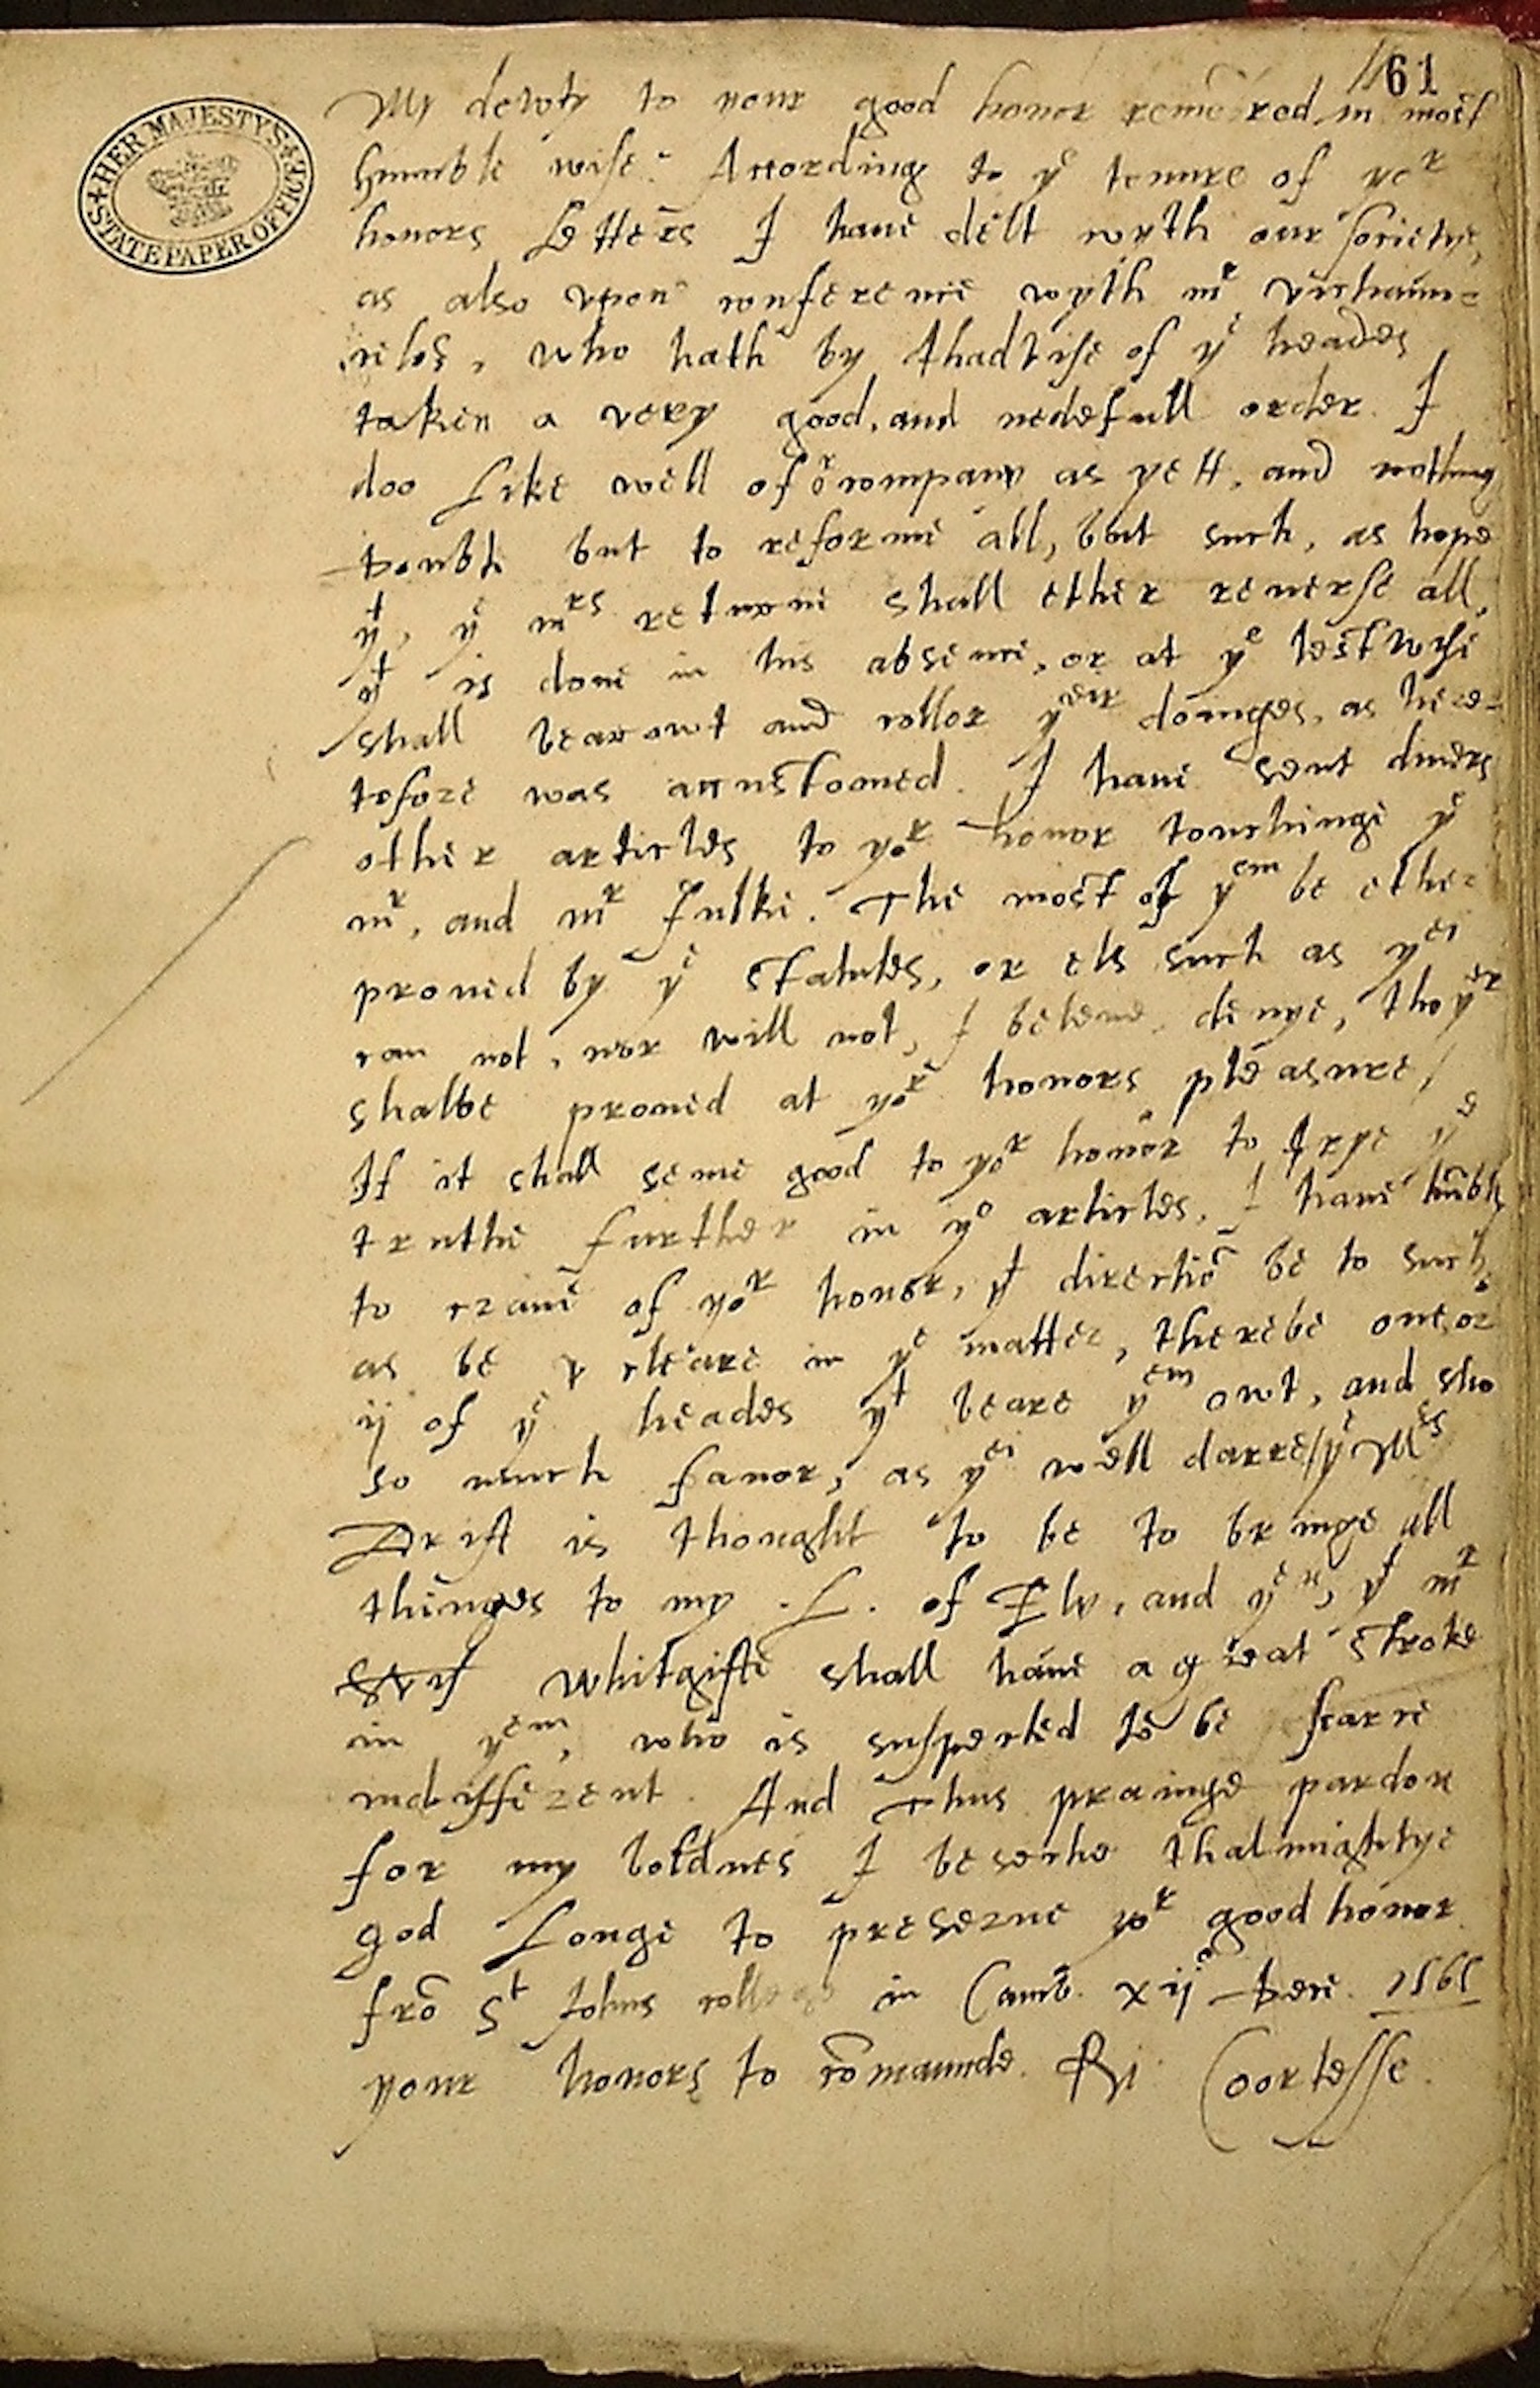 61
HER MAJESTY'S
STATE PAPER OFFICE
My dewty to your good honor remēbred in most
humble wise. According to yᵉ tenure of yoʳ
honors Letters I haue delt wyth our societye,
as also vpon conference wyth mʳ vichaun-
celor, who hath by thadvise of yᵉ heades
taken a very good, and nedefull order. I
doo Like well of oʳ company as yett, and nothing
doubte but to reforme all, but such, as hope
yᵗ, yᵉ mʳˢ returne shall ether reuerse all,
yᵗ is done in his absence, or at yᵉ lestwise
shall bearowt and collor yᵉⁱʳ doinges, as here-
tofore was accustoomed. I haue sent diuers
other articles to yoʳ honor touchinge yᵉ
mʳ, and mʳ Fulke. The most of yᵉᵐ be ether
proued by yᵉ statutes, or els such as yᵉⁱ
can not, nor will not, I beleue, denye, thoyᵉʳ
shalbe proued at yoʳ honors pleasure /
If it shall seme good to yoʳ honor to trye yᵉ
truthe further in yᵉ articles, I haue hūbly
to craue of yoʳ honor, yᵗ directiō be to such,
as be cleare in yᵉ matter, therebe one, or
ij of yᵉ heades yᵗ beare yᵉᵐ owt, and sho
so much fauor, as yᵉⁱ well darre / yᵉ Mʳˢ
Drift is thought to be to bringe all
thinges to my .L. of Ely, and yᵉⁿ, yᵗ mʳ
Whitgifte shall haue a great stroke
in yᵉᵐ, who is suspected to be scarce
indifferent. And Thus prainge pardon
for my boldnes I beseche thalmightye
god Longe to preserue yoʳ good honor
frō Sᵗ Johns college in Camb. xijᵒ Dece. 1565
your honors to cōmaunde. Ri: Coortesse.